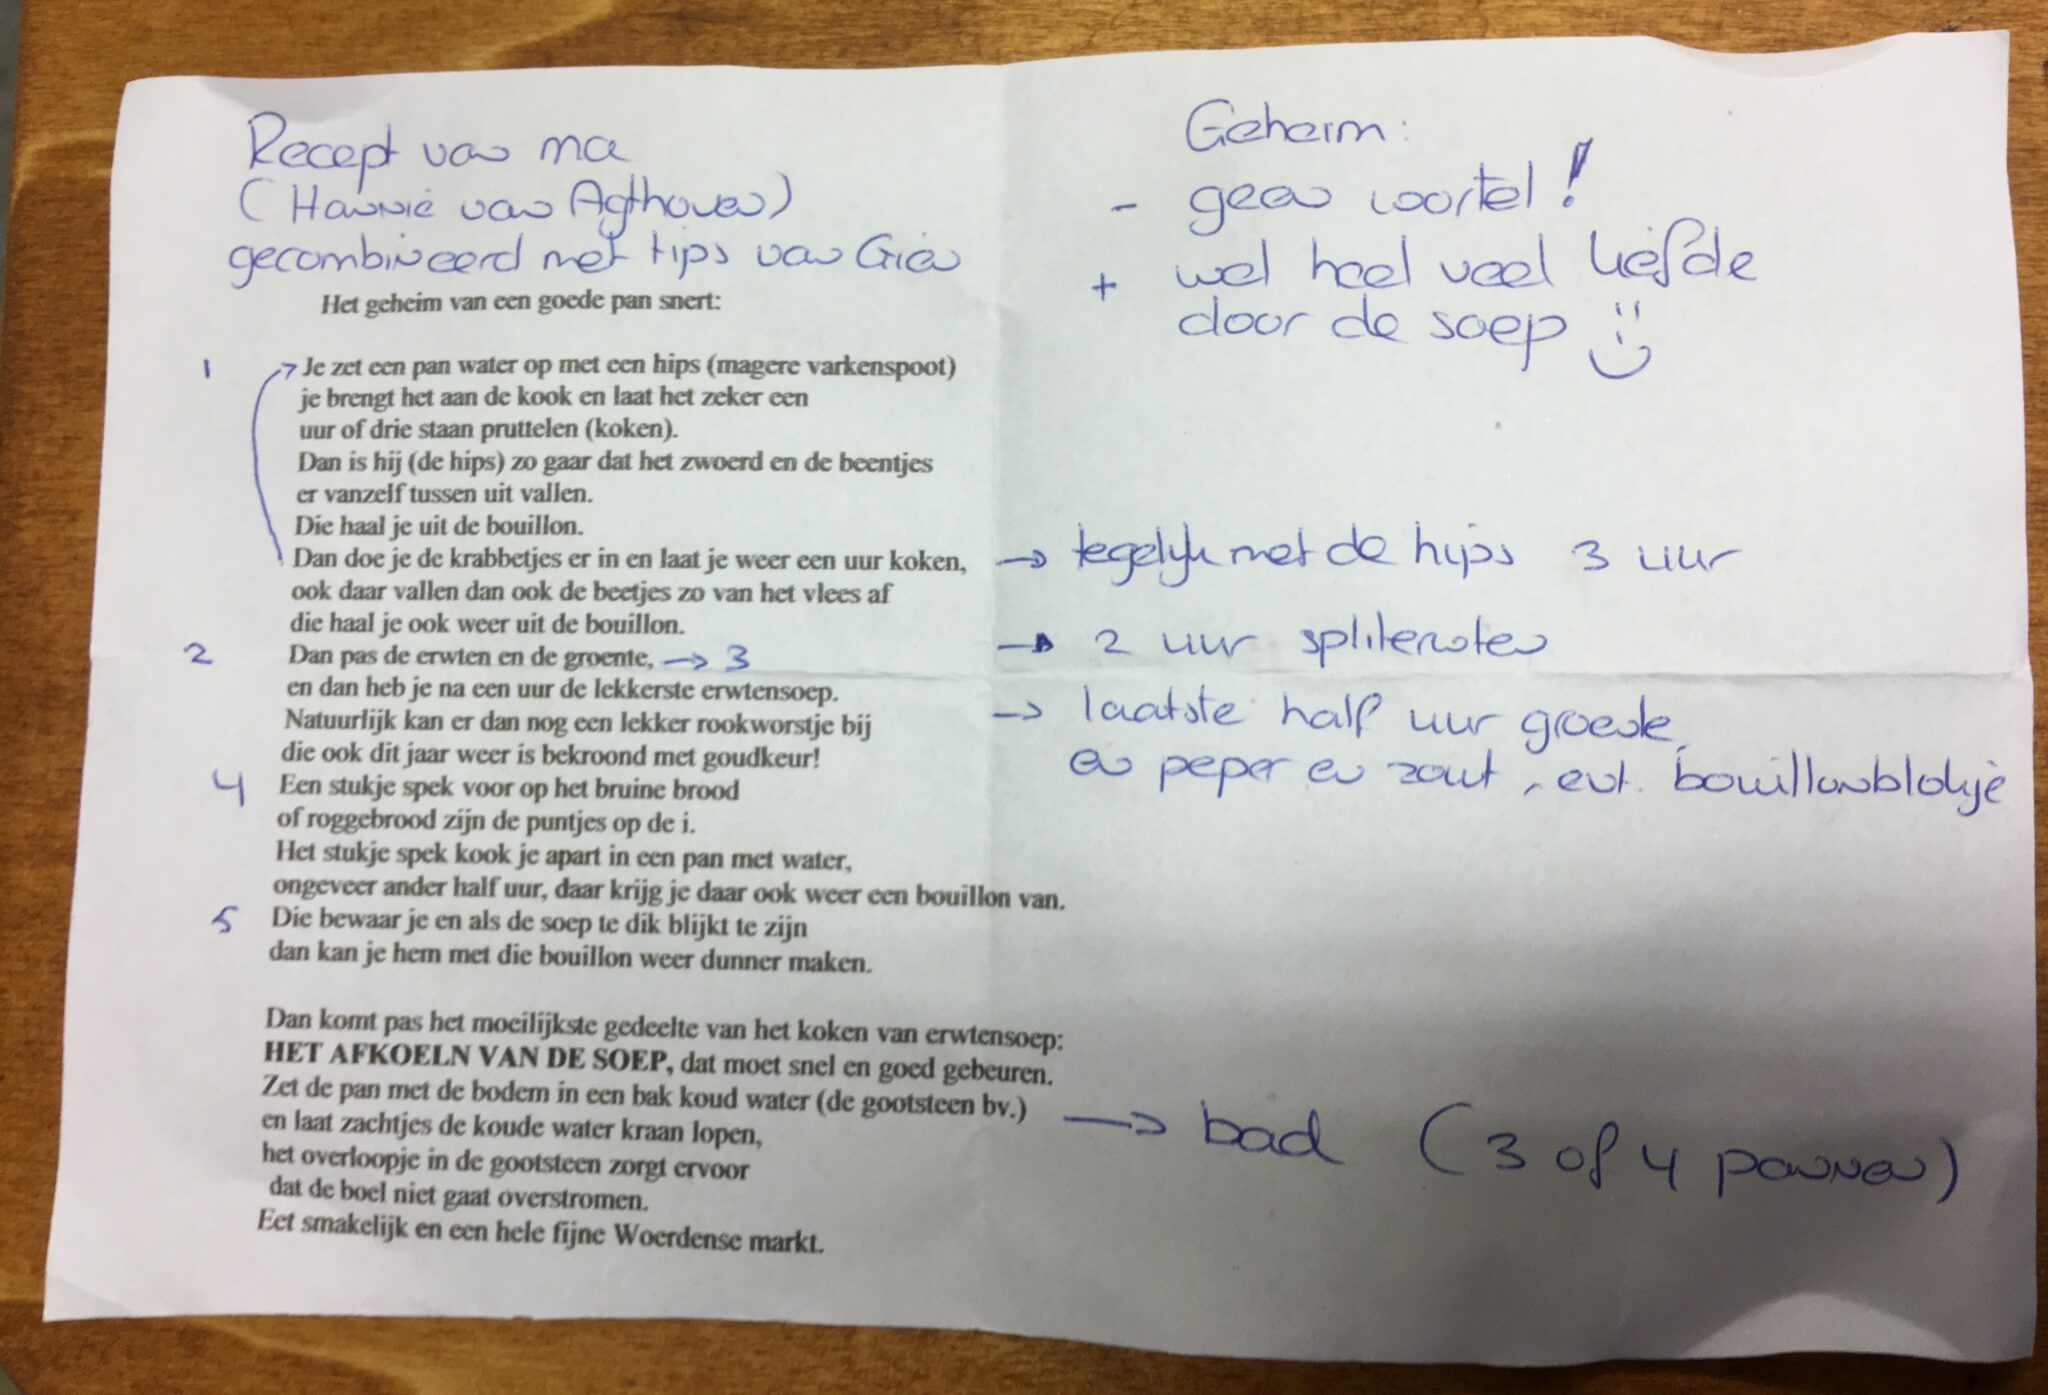 Recept van ma
(Hannie van Agthoven)
gecombineerd met tips van Gien
Geheim:
- geen wortel!
+ wel heel veel liefde
door de soep
Het geheim van een goede pan snert:
1 Je zet een pan water op met een hips (magere varkenspoot)
je brengt het aan de kook en laat het zeker een
uur of drie staan pruttelen (koken).
Dan is hij (de hips) zo gaar dat het zwoerd en de beentjes
er vanzelf tussen uit vallen.
Die haal je uit de bouillon.
Dan doe je de krabbetjes er in en laat je weer een uur koken, → tegelijk met de hips 3 uur
ook daar vallen dan ook de beetjes zo van het vlees af
die haal je ook weer uit de bouillon.
2 Dan pas de erwten en de groente, → 3 → 2 uur spliterwten
en dan heb je na een uur de lekkerste erwtensoep.
Natuurlijk kan er dan nog een lekker rookworstje bij → laatste half uur groente
die ook dit jaar weer is bekroond met goudkeur! en peper en zout, evt. bouillonblokje
4 Een stukje spek voor op het bruine brood
of roggebrood zijn de puntjes op de i.
Het stukje spek kook je apart in een pan met water,
ongeveer ander half uur, daar krijg je daar ook weer een bouillon van.
5 Die bewaar je en als de soep te dik blijkt te zijn
dan kan je hem met die bouillon weer dunner maken.
Dan komt pas het moeilijkste gedeelte van het koken van erwtensoep:
HET AFKOELN VAN DE SOEP, dat moet snel en goed gebeuren.
Zet de pan met de bodem in een bak koud water (de gootsteen bv.) → bad (3 of 4 pannen)
en laat zachtjes de koude water kraan lopen,
het overloopje in de gootsteen zorgt ervoor
dat de boel niet gaat overstromen.
Eet smakelijk en een hele fijne Woerdense markt.